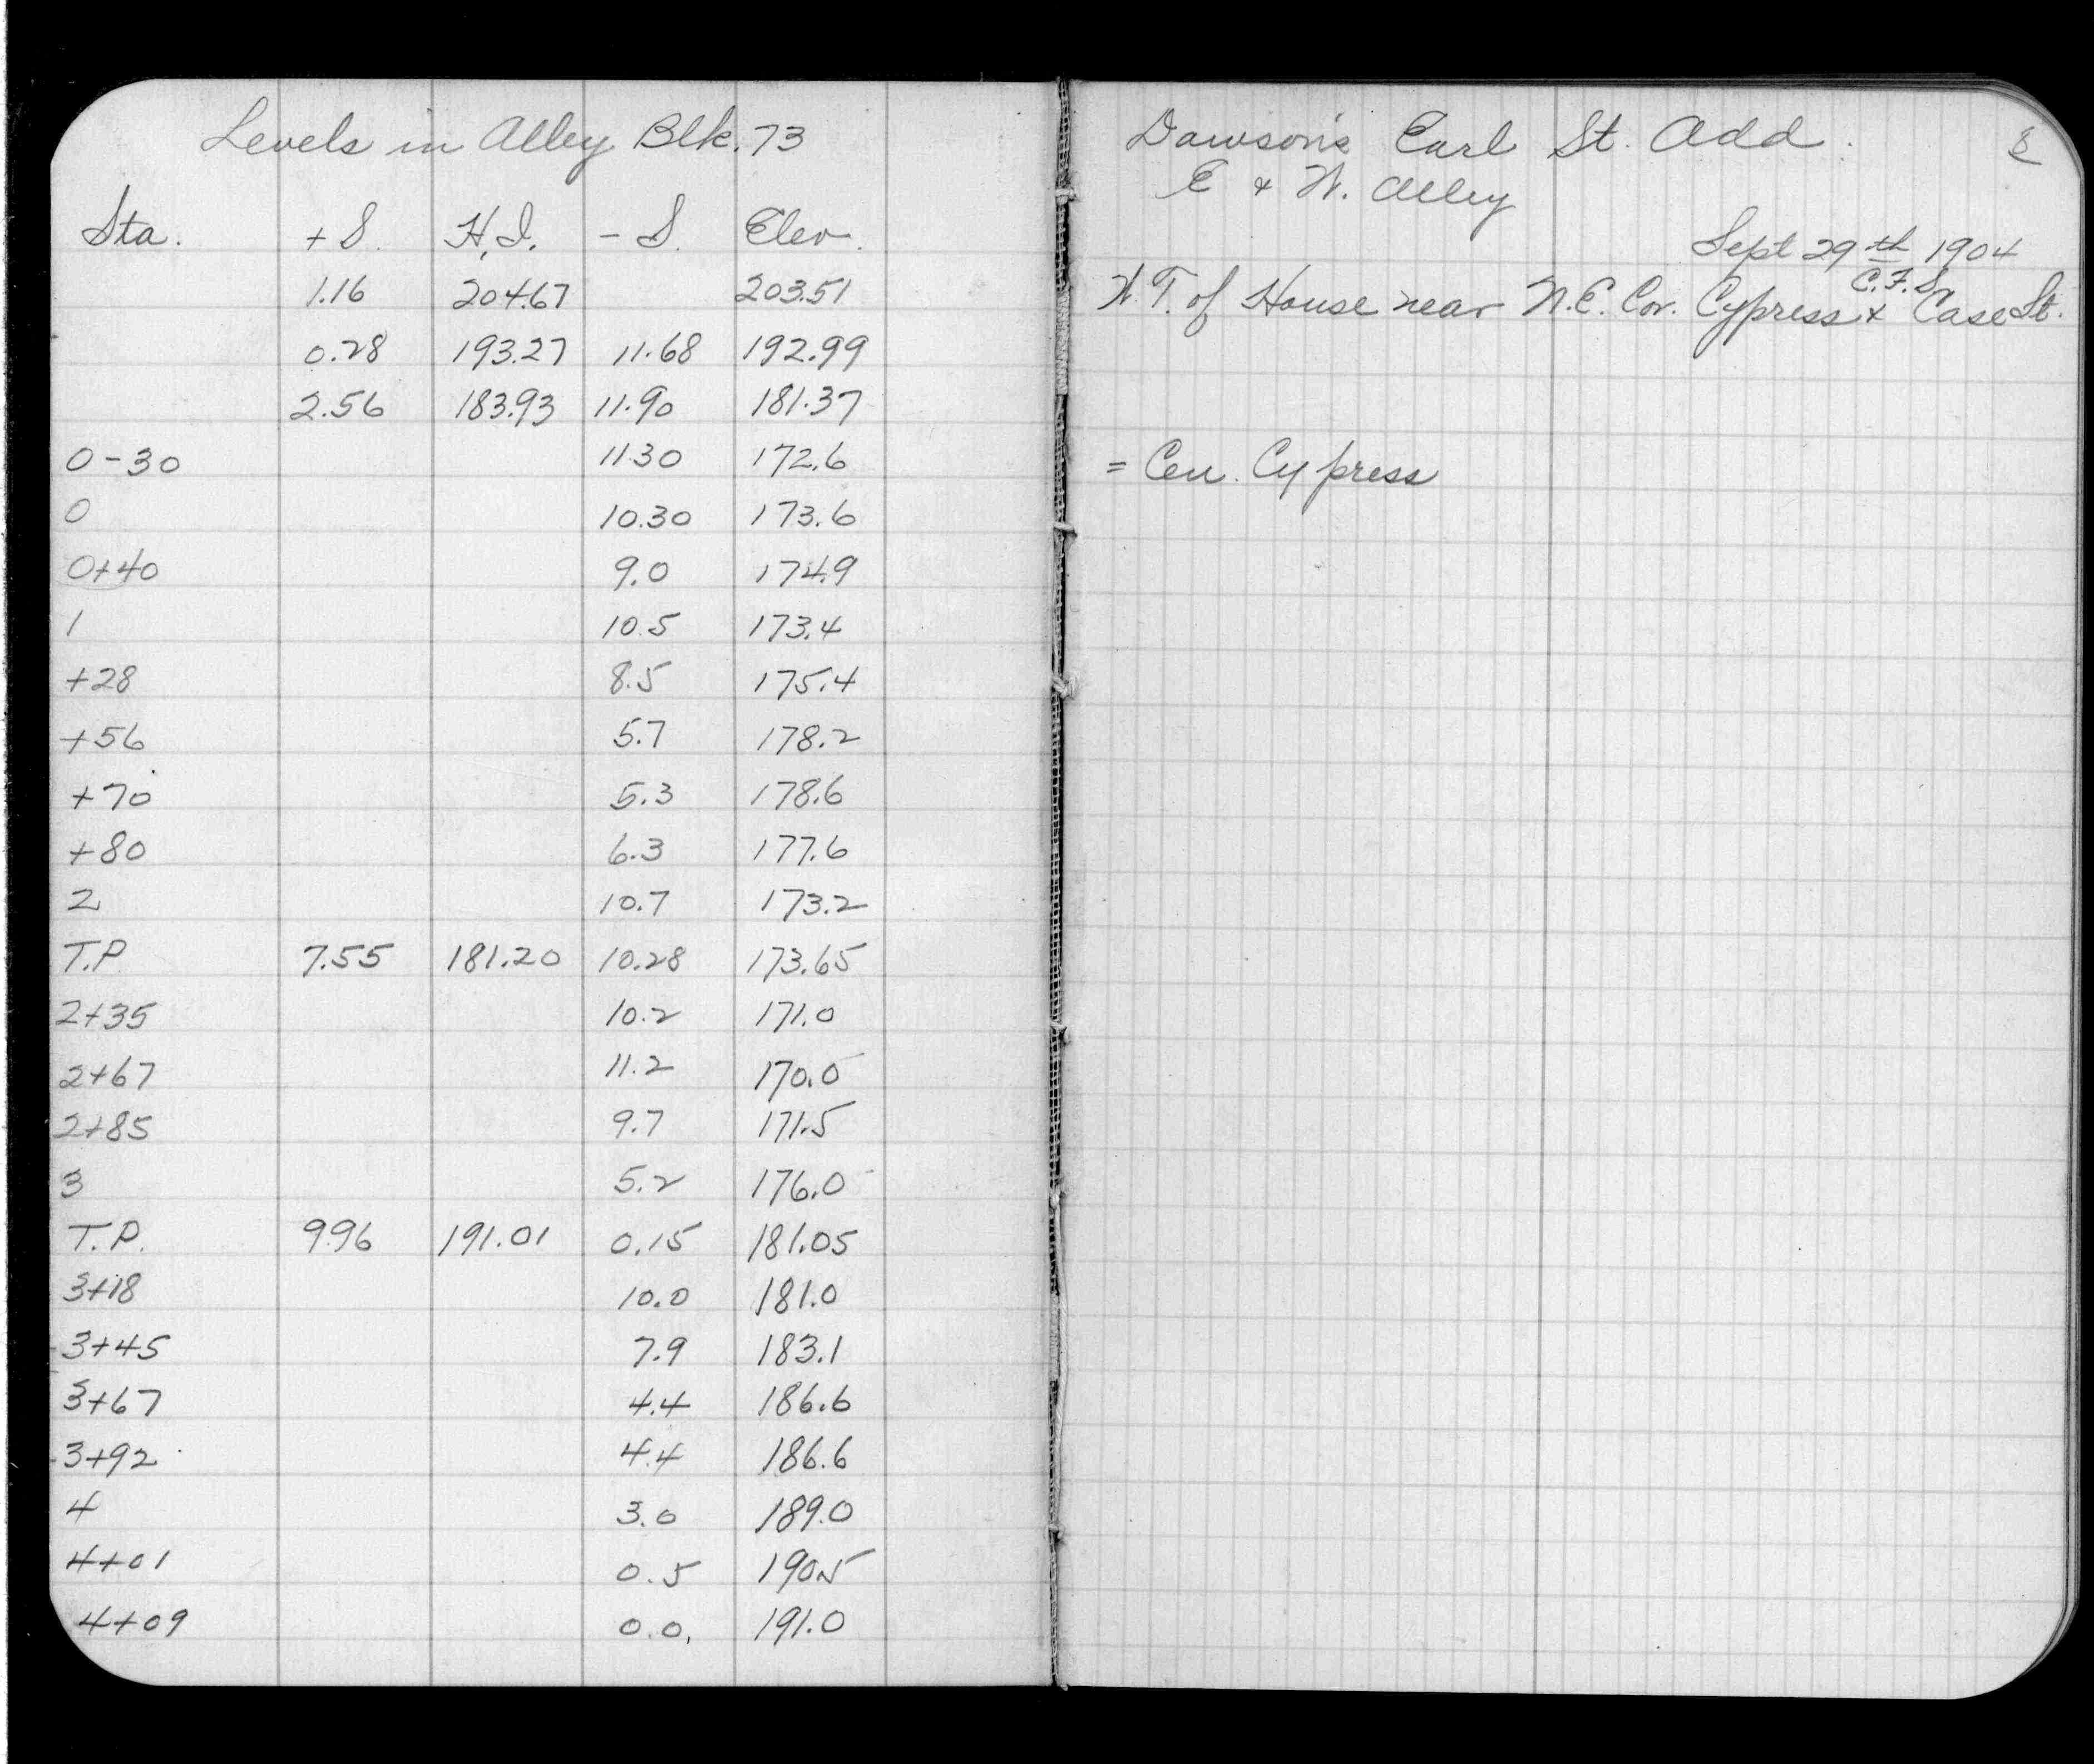 Levels in Alley Blk. 73
Sta. +S. H.I. -S. Elev.
1.16 204.67 203.51
0.28 193.27 11.68 192.99
2.56 183.93 11.90 181.37
0-30 11.30 172.6
0 10.30 173.6
0+40 9.0 174.9
1 10.5 173.4
+28 8.5 175.4
+56 5.7 178.2
+70 5.3 178.6
+80 6.3 177.6
2 10.7 173.2
T.P. 7.55 181.20 10.28 173.65
2+35 10.2 171.0
2+67 11.2 170.0
2+85 9.7 171.5
3 5.2 176.0
T.P. 9.96 191.01 0.15 181.05
3+18 10.0 181.0
3+45 7.9 183.1
3+67 4.4 186.6
3+92 4.4 186.6
4 3.0 189.0
4+01 0.5 190.5
4+09 0.0. 191.0
Dawson's Earl St. Add. 8
E + W. Alley
Sept 29th 1904
C.F.S.
W.T. of House near N.E. Cor. Cypress + Case St.
= Cen. Cypress